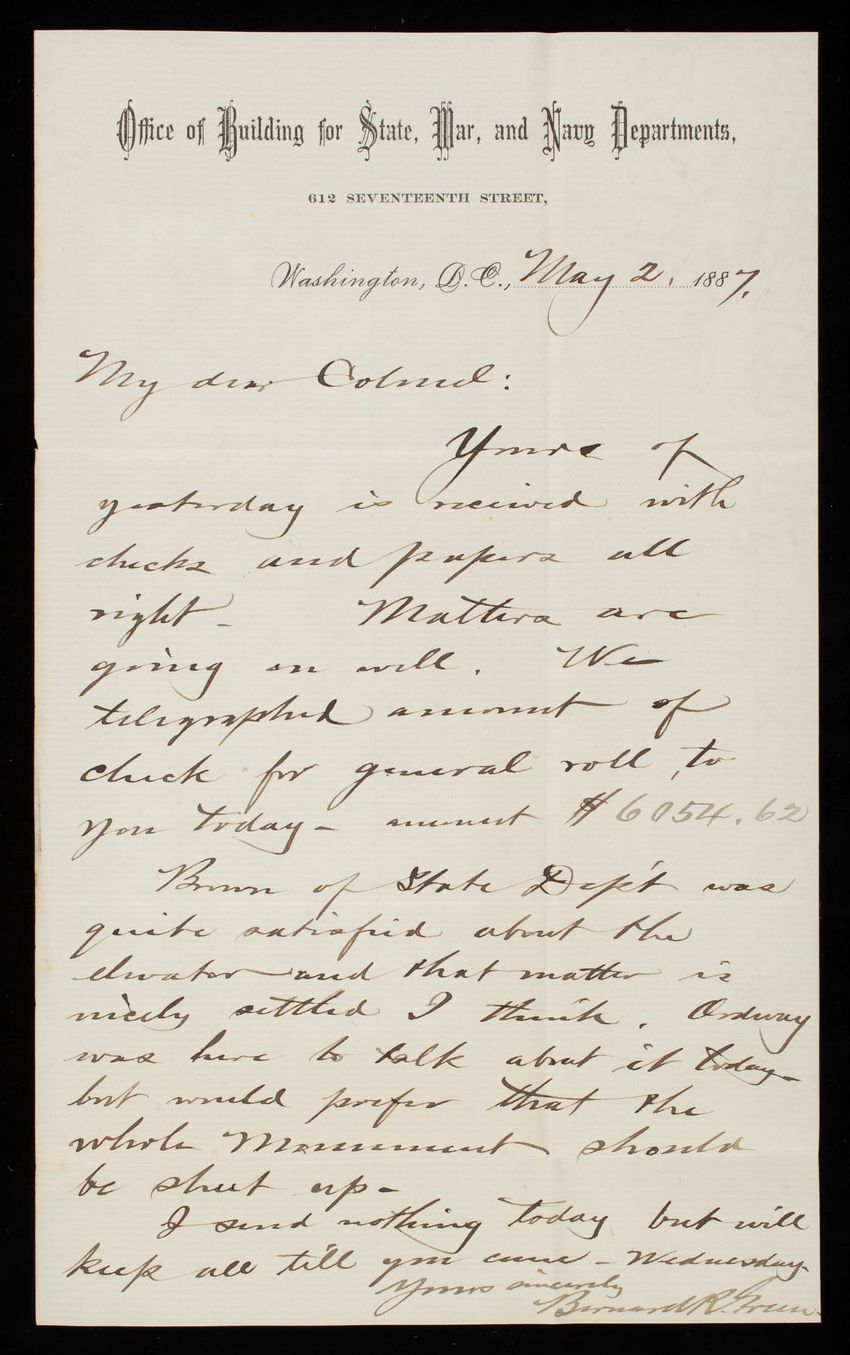 Office of Building for State, War, and Navy Departments,
612 SEVENTEENTH STREET,
Washington, D.C., May 2, 1887.
My dear Colonel:
Yours of
yesterday is received with
checks and papers all
right – Matters are
going on well. We
telegraphed amount of
check for general roll, to
you today – amount $6054.62
Brown of State Dep't was
quite satisfied about the
elevator and that matter is
nicely settled I think. Ordway
was here to talk about it today –
but would prefer that the
whole Monument should
be shut up –
I send nothing today but will
keep all till you come – Wednesday.
Yours sincerely
Bernard R. Green